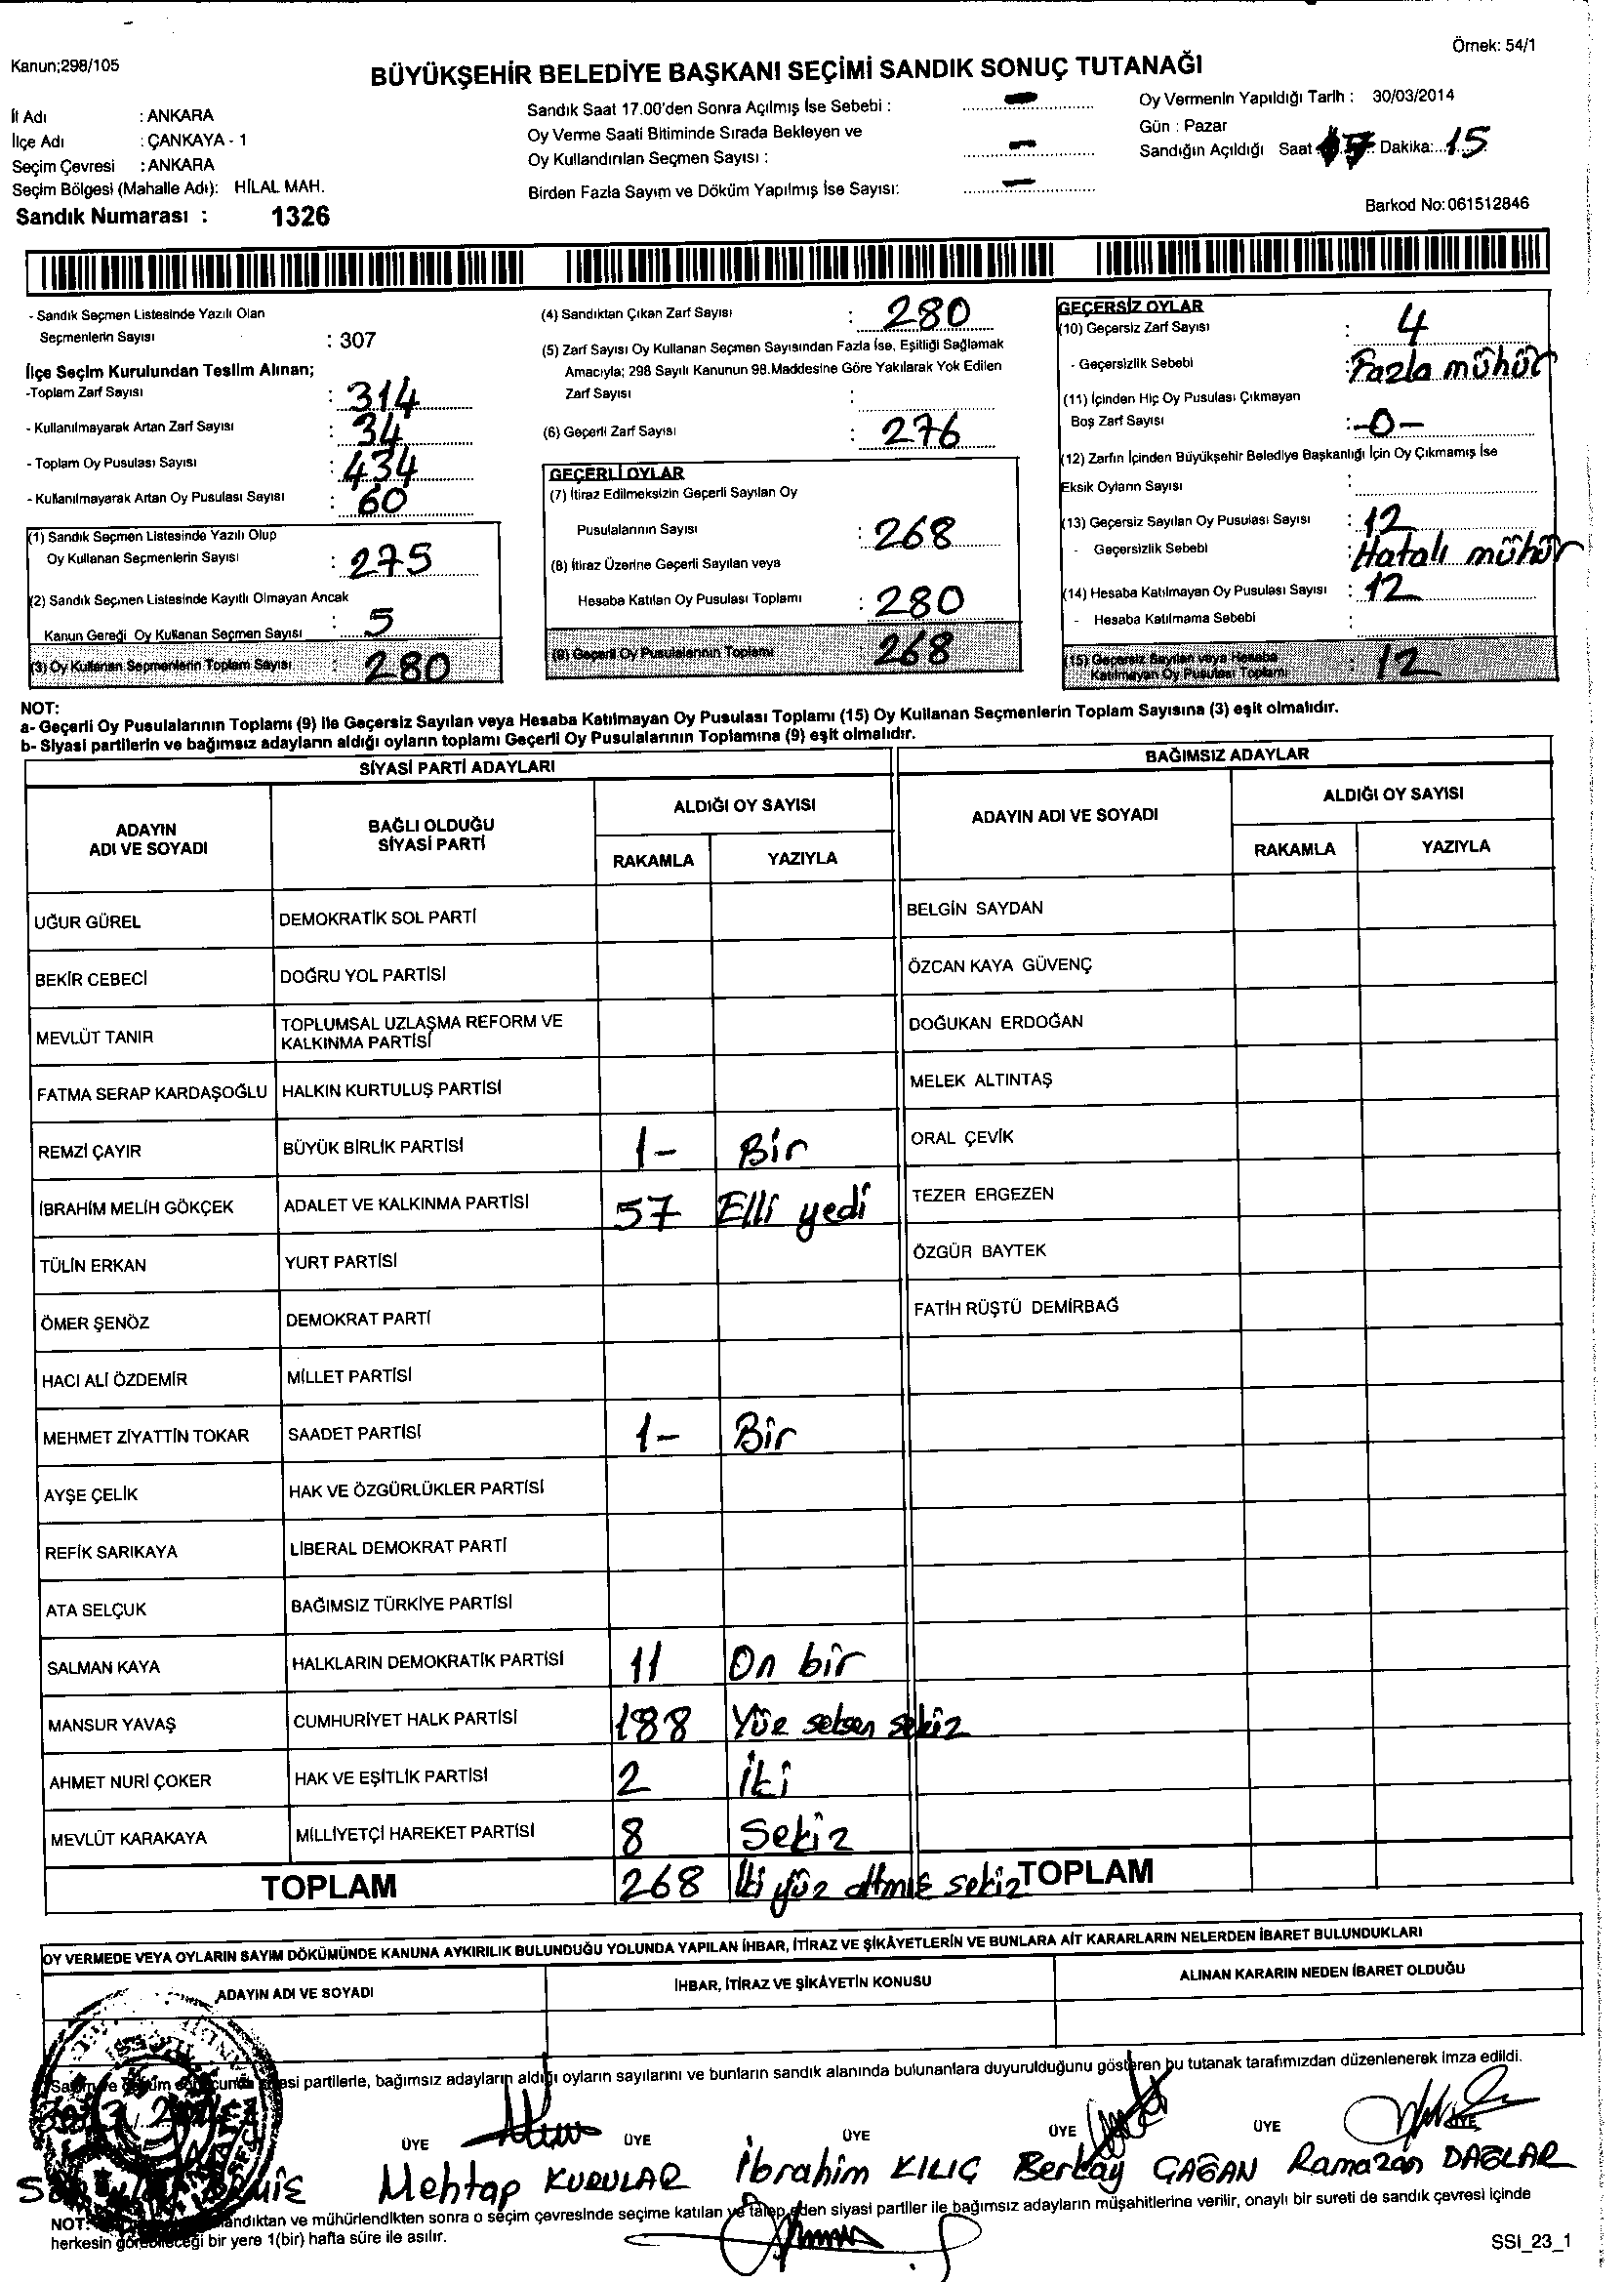 Örnek: 54/1
Kanun;298/105
BÜYÜKŞEHİR BELEDİYE BAŞKANI SEÇİMİ SANDIK SONUÇ TUTANAĞI
İl Adı : ANKARA
İlçe Adı : ÇANKAYA - 1
Seçim Çevresi : ANKARA
Seçim Bölgesi (Mahalle Adı): HİLAL MAH.
Sandık Numarası : 1326
Sandık Saat 17.00'den Sonra Açılmış İse Sebebi : –
Oy Verme Saati Bitiminde Sırada Bekleyen ve
Oy Kullandırılan Seçmen Sayısı : –
Birden Fazla Sayım ve Döküm Yapılmış İse Sayısı: –
Oy Vermenin Yapıldığı Tarih : 30/03/2014
Gün : Pazar
Sandığın Açıldığı Saat 17 Dakika: 15
Barkod No: 061512846
- Sandık Seçmen Listesinde Yazılı Olan
Seçmenlerin Sayısı : 307
İlçe Seçim Kurulundan Teslim Alınan;
-Toplam Zarf Sayısı : 314
- Kullanılmayarak Artan Zarf Sayısı : 34
- Toplam Oy Pusulası Sayısı : 434
- Kullanılmayarak Artan Oy Pusulası Sayısı : 60
(1) Sandık Seçmen Listesinde Yazılı Olup
Oy Kullanan Seçmenlerin Sayısı : 275
(2) Sandık Seçmen Listesinde Kayıtlı Olmayan Ancak
Kanun Gereği Oy Kullanan Seçmen Sayısı : 5
(3) Oy Kullanan Seçmenlerin Toplam Sayısı : 280
(4) Sandıktan Çıkan Zarf Sayısı : 280
(5) Zarf Sayısı Oy Kullanan Seçmen Sayısından Fazla İse, Eşitliği Sağlamak
Amacıyla; 298 Sayılı Kanunun 98.Maddesine Göre Yakılarak Yok Edilen
Zarf Sayısı :
(6) Geçerli Zarf Sayısı : 276
GEÇERLİ OYLAR
(7) İtiraz Edilmeksizin Geçerli Sayılan Oy
Pusulalarının Sayısı : 268
(8) İtiraz Üzerine Geçerli Sayılan veya
Hesaba Katılan Oy Pusulası Toplamı : 280
(9) Geçerli Oy Pusulalarının Toplamı 268
GEÇERSİZ OYLAR
(10) Geçersiz Zarf Sayısı : 4
- Geçersizlik Sebebi : Fazla mühür
(11) İçinden Hiç Oy Pusulası Çıkmayan
Boş Zarf Sayısı : -0-
(12) Zarfın İçinden Büyükşehir Belediye Başkanlığı İçin Oy Çıkmamış İse
Eksik Oyların Sayısı :
(13) Geçersiz Sayılan Oy Pusulası Sayısı : 12
- Geçersizlik Sebebi : Hatalı mühür
(14) Hesaba Katılmayan Oy Pusulası Sayısı : 12
- Hesaba Katılmama Sebebi :
(15) Geçersiz Sayılan veya Hesaba
Katılmayan Oy Pusulası Toplamı : 12
NOT:
a- Geçerli Oy Pusulalarının Toplamı (9) ile Geçersiz Sayılan veya Hesaba Katılmayan Oy Pusulası Toplamı (15) Oy Kullanan Seçmenlerin Toplam Sayısına (3) eşit olmalıdır.
b- Siyasi partilerin ve bağımsız adayların aldığı oyların toplamı Geçerli Oy Pusulalarının Toplamına (9) eşit olmalıdır.
SİYASİ PARTİ ADAYLARI
ADAYIN ADI VE SOYADI BAĞLI OLDUĞU SİYASİ PARTİ ALDIĞI OY SAYISI
RAKAMLA YAZIYLA
UĞUR GÜREL DEMOKRATİK SOL PARTİ
BEKİR CEBECİ DOĞRU YOL PARTİSİ
MEVLÜT TANIR TOPLUMSAL UZLAŞMA REFORM VE KALKINMA PARTİSİ
FATMA SERAP KARDAŞOĞLU HALKIN KURTULUŞ PARTİSİ
REMZİ ÇAYIR BÜYÜK BİRLİK PARTİSİ 1- Bir
İBRAHİM MELİH GÖKÇEK ADALET VE KALKINMA PARTİSİ 57 Elli yedi
TÜLİN ERKAN YURT PARTİSİ
ÖMER ŞENÖZ DEMOKRAT PARTİ
HACI ALİ ÖZDEMİR MİLLET PARTİSİ
MEHMET ZİYATTİN TOKAR SAADET PARTİSİ 1- Bir
AYŞE ÇELİK HAK VE ÖZGÜRLÜKLER PARTİSİ
REFİK SARIKAYA LİBERAL DEMOKRAT PARTİ
ATA SELÇUK BAĞIMSIZ TÜRKİYE PARTİSİ
SALMAN KAYA HALKLARIN DEMOKRATİK PARTİSİ 11 On bir
MANSUR YAVAŞ CUMHURİYET HALK PARTİSİ 188 Yüz seksen sekiz
AHMET NURİ ÇOKER HAK VE EŞİTLİK PARTİSİ 2 İki
MEVLÜT KARAKAYA MİLLİYETÇİ HAREKET PARTİSİ 8 Sekiz
TOPLAM 268 İki yüz altmış sekiz
BAĞIMSIZ ADAYLAR
ADAYIN ADI VE SOYADI ALDIĞI OY SAYISI
RAKAMLA YAZIYLA
BELGİN SAYDAN
ÖZCAN KAYA GÜVENÇ
DOĞUKAN ERDOĞAN
MELEK ALTINTAŞ
ORAL ÇEVİK
TEZER ERGEZEN
ÖZGÜR BAYTEK
FATİH RÜŞTÜ DEMİRBAĞ
TOPLAM
OY VERMEDE VEYA OYLARIN SAYIM DÖKÜMÜNDE KANUNA AYKIRILIK BULUNDUĞU YOLUNDA YAPILAN İHBAR, İTİRAZ VE ŞİKÂYETLERİN VE BUNLARA AİT KARARLARIN NELERDEN İBARET BULUNDUKLARI
ADAYIN ADI VE SOYADI İHBAR, İTİRAZ VE ŞİKÂYETİN KONUSU ALINAN KARARIN NEDEN İBARET OLDUĞU
partilerle, bağımsız adayların aldığı oyların sayılarını ve bunların sandık alanında bulunanlara duyurulduğunu gösteren bu tutanak tarafımızdan düzenlenerek imza edildi.
ÜYE ÜYE ÜYE ÜYE ÜYE ÜYE
Mehtap KURULAR İbrahim KILIÇ Berkay ÇAĞAN Ramazan DAĞLAR
NOT: ve mühürlendikten sonra o seçim çevresinde seçime katılan ve talep eden siyasi partiler ile bağımsız adayların müşahitlerine verilir, onaylı bir sureti de sandık çevresi içinde
herkesin görebileceği bir yere 1(bir) hafta süre ile asılır.
SSI_23_1